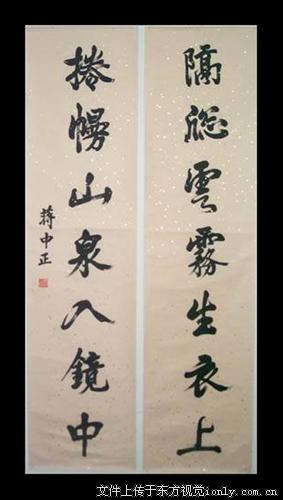 隔窗雲霧生衣上
捲幔山泉入鏡中
蒋中正
文件上传于东方视觉ionly.com.cn